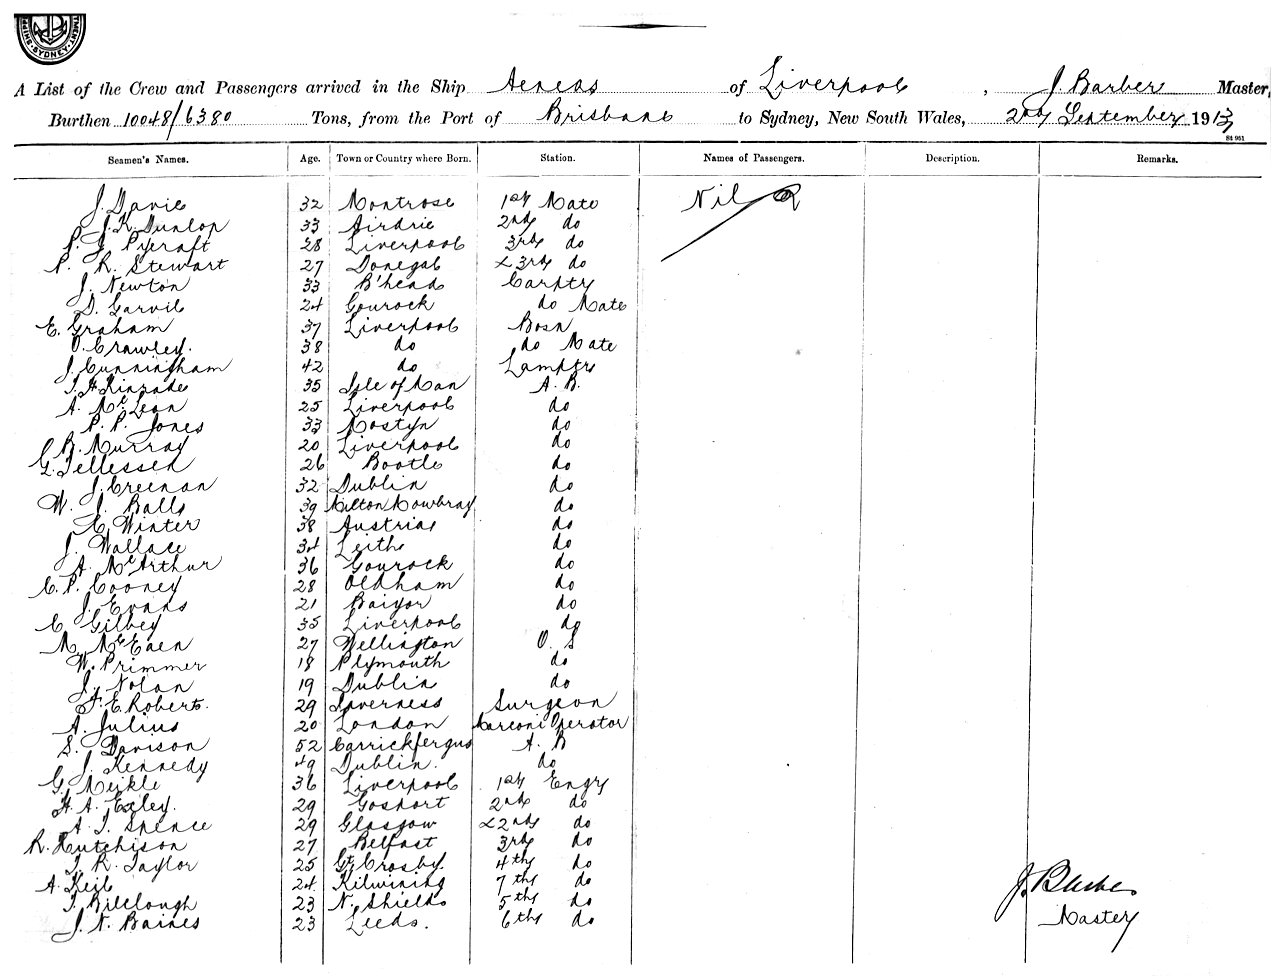 SYDNEY
A List of the Crew and Passengers arrived in the Ship Aeneas of Liverpool , J. Barber Master,
Burthen 10048/6380 Tons, from the Port of Brisbane to Sydney, New South Wales, 2nd September 1913
St 961
Seamen's Names. Age. Town or Country where Born. Station. Names of Passengers. Description. Remarks.
J. Davie 32 Montrose 1st Mate Nil
J. K. Dunlop 33 Airdrie 2nd do
P. J. Pycraft 28 Liverpool 3rd do
P. R. Stewart 27 Donegal x 3rd do
J. Newton 33 B'head Carptr
D. Garvil 24 Gourock do Mate
E. Graham 37 Liverpool Bosn
O. Crawley. 38 do do Mate
J. Cunningham 42 do Lamptr
T. H. Kinrade 35 Isle of Man A. B.
A. McLean 25 Liverpool do
P. P. Jones 33 Mostyn do
P. B. Murray 20 Liverpool do
G. Tellessen 26 Bootle do
J. Creenan 32 Dublin do
W. J. Balls 39 Milton Mowbray do
C. Winter 38 Austria do
J. Wallace 34 Leith do
A. McArthur 36 Gourock do
C. P. Cooney 28 Oldham do
J. Evans 21 Bangor do
C. Gilbey 35 Liverpool do
M. McEaen 27 Wellington O. S
W. Primmer 18 Plymouth do
J. Nolan 19 Dublin do
F. E. Roberts. 29 Inverness Surgeon
A. Julius 20 London Marconi Operator
S. Davison 52 Carrickfergus A. B
J. Kennedy 49 Dublin. do
G. Meikle 36 Liverpool 1st Engr
H. A. Exley. 29 Gosport 2nd do
A. T. Spence 29 Glasgow x 2nd do
R. Hutchison 27 Belfast 3rd do
T. R. Taylor 25 Gt. Crosby. 4th do
A. Keil 24 Kilwining 7th do
T. Bileclough 23 N. Shields 5th do
J. N. Baines 23 Leeds. 6th do
J. Barber
Master